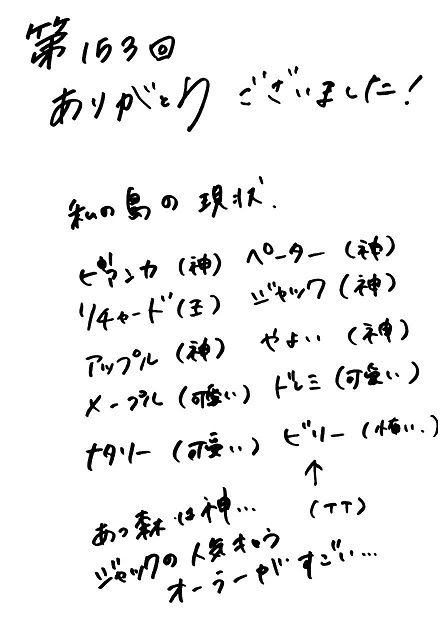 第153回
ありがとう ございました!
私の島の現状.
ビアンカ (神) ペーター (神)
リチャード (王) ジャック (神)
アップル (神) やよい (神)
メープル (可愛い) ドレミ (可愛い)
ナタリー (可愛い) ビリー (怖い.)
↑
あつ森は神… (TT)
ジャックの人気オーラ
オーラーがすごい…